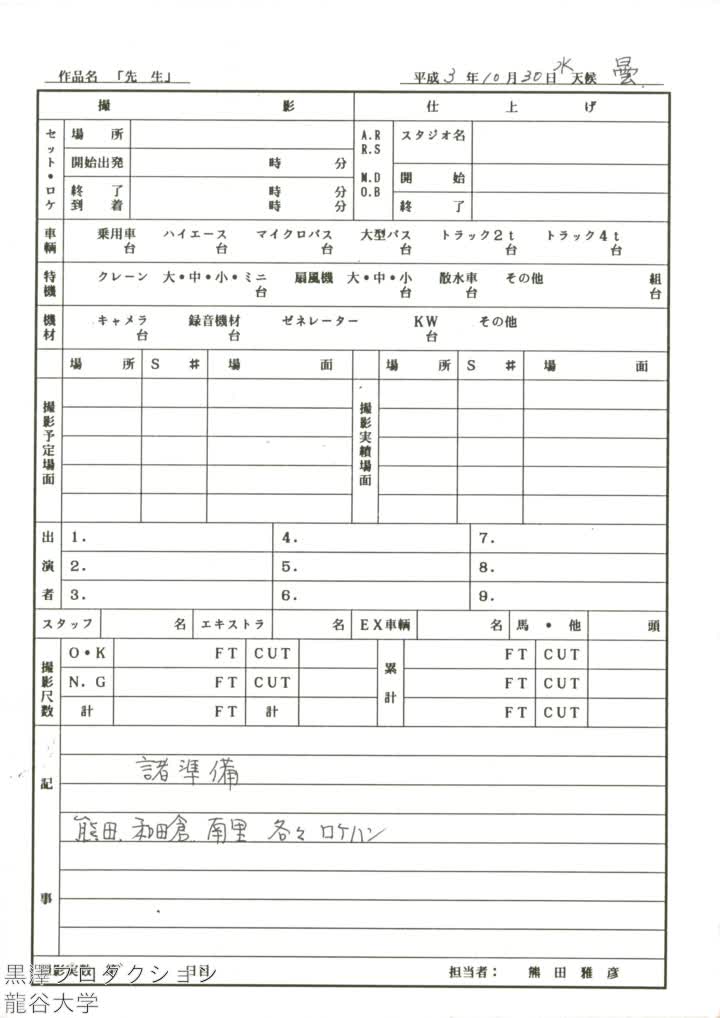 作品名 「先 生」 平成 3 年 10 月 30 日 水 天候 曇
撮 影 仕 上 げ
セット・ロケ 場 所 A.R R.S M.D O.B スタジオ名
開始出発 時 分
開 始
終 了 時 分
到 着 時 分
終 了
車輌 乗用車 台 ハイエース 台 マイクロバス 台 大型バス 台 トラック2t 台 トラック4t 台
特機 クレーン 大・中・小・ミニ 台 扇風機 大・中・小 台 散水車 台 その他 組 台
機材 キャメラ 台 録音機材 台 ゼネレーター KW 台 その他
場 所 S # 場 面 場 所 S # 場 面
撮影予定場面 撮影実績場面
出演者
1. 4. 7.
2. 5. 8.
3. 6. 9.
スタッフ 名 エキストラ 名 EX車輌 名 馬・他 頭
撮影尺数 O・K FT CUT 累計 FT CUT
N.G FT CUT FT CUT
計 FT 計 FT CUT
記事
諸準備
熊田、和田倉、南里 各々 ロケハン
撮影実数 日目 担当者: 熊 田 雅 彦
黒澤プロダクション
龍谷大学